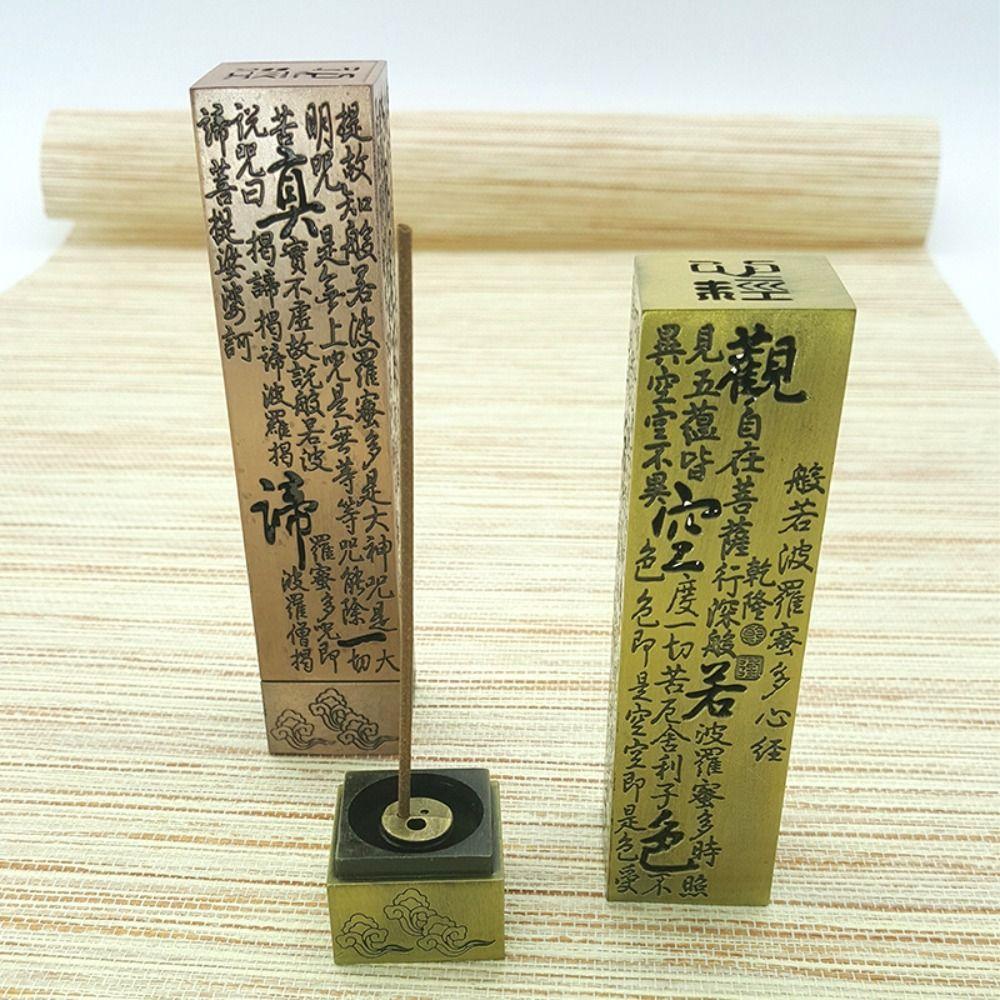 提故知般若波羅蜜多是大神咒是大
明咒是無上咒是無等等咒能除一切
苦真實不虛故說般若波羅蜜多咒即
説咒曰揭諦揭諦波羅揭諦波羅僧揭
諦菩提娑婆訶
心經
般若波羅蜜多心経
乾隆
觀自在菩薩行深般若波羅蜜多時照
見五蘊皆空度一切苦厄舍利子色不
異空空不異色色即是空空即是色受